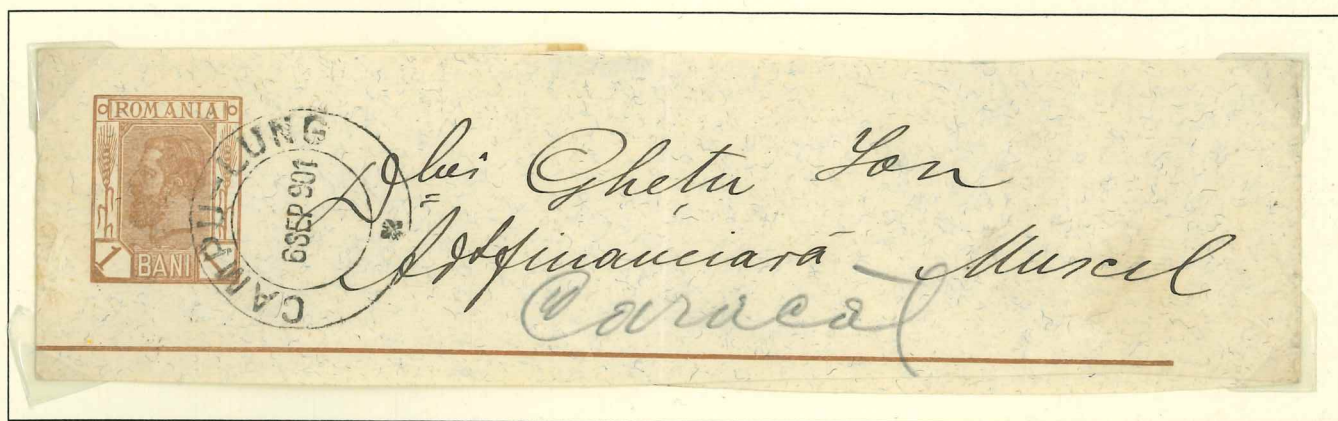 ROMANIA
1 BANI
CAMPU-LUNG
6 SEP 901
Ghetu Ion
financiară Muscel
Caracal